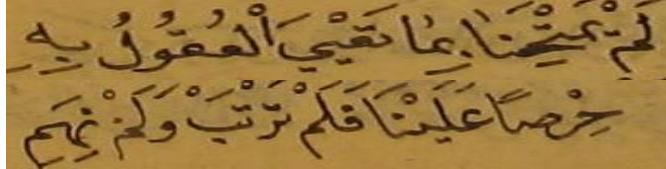 لَمْ يَمْتَحِنَّا بِمَا تَعْيَي الْعُقُولُ بِهِ
حِرْصًا عَلَيْنَا فَلَمْ نَرْتَبْ وَلَمْ نَهِمِ